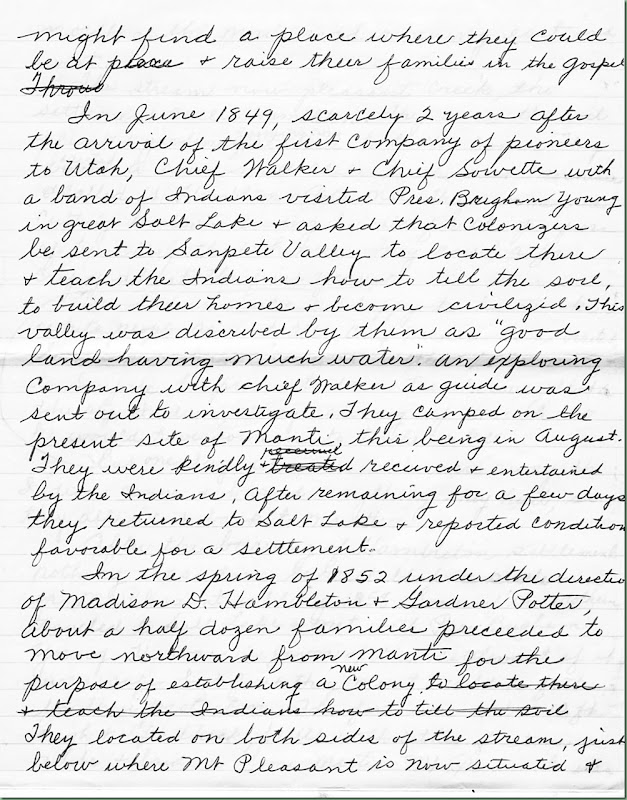 might find a place where they could
be at peace & raise their families in the gospel
Throu
In June 1849, scarcely 2 years after
the arrival of the first company of pioneers
to Utah, Chief Walker & Chief Sowette with
a band of Indians visited Pres. Brigham Young
in great Salt Lake & asked that Colonizers
be sent to Sanpete Valley to locate there
& teach the Indians how to till the soil,
to build their homes & become civilized. This
valley was discribed by them as "good
land having much water". An exploring
Company with chief Walker as guide was
sent out to investigate. They camped on the
present site of Manti, this being in August.
received
They were kindly & treated recieved & entertained
by the Indians, After remaining for a few days
they returned to Salt Lake & reported condition
favorable for a settlement.
In the spring of 1852 under the directio
of Madison D. Hambleton & Gardner Potter,
about a half dozen families preceeded to
move northward from Manti for the
purpose of establishing a new Colony to locate there
& teach the Indians how to till the soil
They located on both sides of the stream, just
below where Mt Pleasant is now situated &